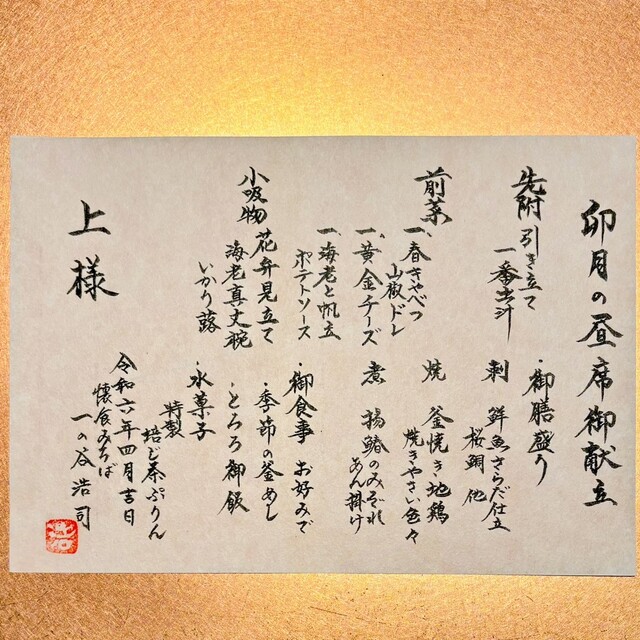 卯月の昼席御献立
先附 引き立て
一番出汁
前菜
一、春きゃべつ
山椒ドレ
一、黄金チーズ
一、海老と帆立
ポテトソース
小吸物 花弁見立て
海老真丈椀
いかり蕗
・御膳盛り
刺 鮮魚さらだ仕立
桜鯛 他
焼 釜焼き地鶏
焼きやさい色々
煮 揚鰆のみぞれ
あん掛け
・御食事 お好みで
・季節の釜めし
・とろろ御飯
・水菓子
特製
焙じ茶ぷりん
令和六年四月吉日
懐食みちば
一の谷浩司
上様